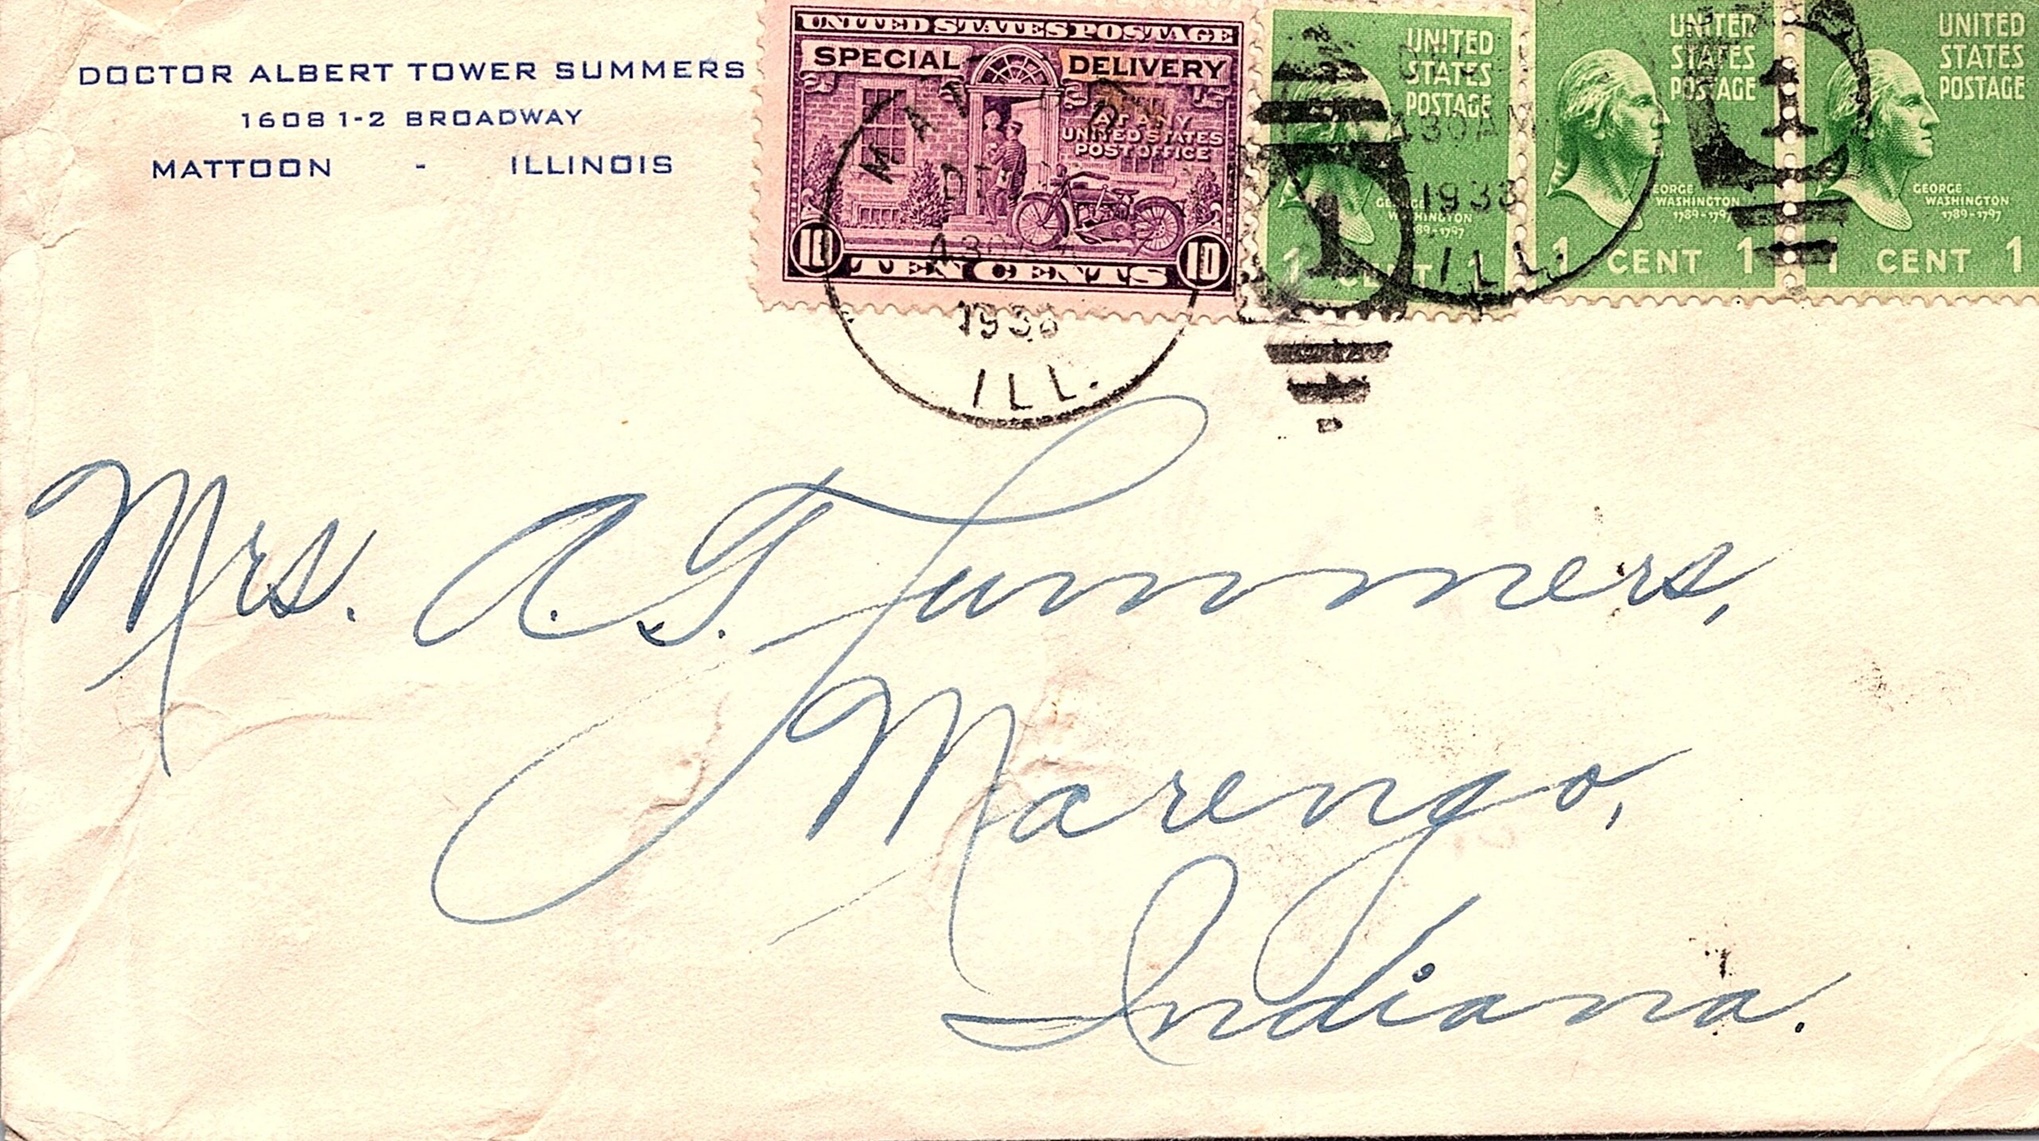 DOCTOR ALBERT TOWER SUMMERS
1608 1-2 BROADWAY
MATTOON - ILLINOIS
UNITED STATES POSTAGE
SPECIAL DELIVERY
AT ANY
UNITED STATES
POST OFFICE
10 TEN CENTS 10
UNITED
STATES
POSTAGE
GEORGE
WASHINGTON
1789-1797
1 CENT 1
UNITED
STATES
POSTAGE
GEORGE
WASHINGTON
1789-1797
1 CENT 1
UNITED
STATES
POSTAGE
GEORGE
WASHINGTON
1789-1797
1 CENT 1
ILL.
430 AM
ILL.
1
1
Mrs. A. T. Summers,
Marengo,
Indiana.